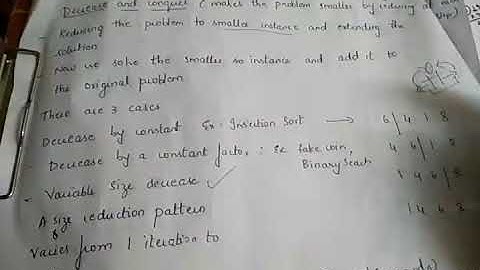 Decrease and conquer (makes the problem smaller by reducing at each
Reducing the problem to smaller instance and extending the
solution
Now we solve the smaller instance and add it to
the original problem
There are 3 cases
Decrease by constant Ex: Insertion Sort → 6 | 4 1 8
- Decrease by a constant factor : Ex fake coin, 4 6 | 1 8
Binary Search
- Variable size decrease ✓ 1 4 6 | 8
A size reduction pattern 1 4 6 8
Varies from 1 iteration to